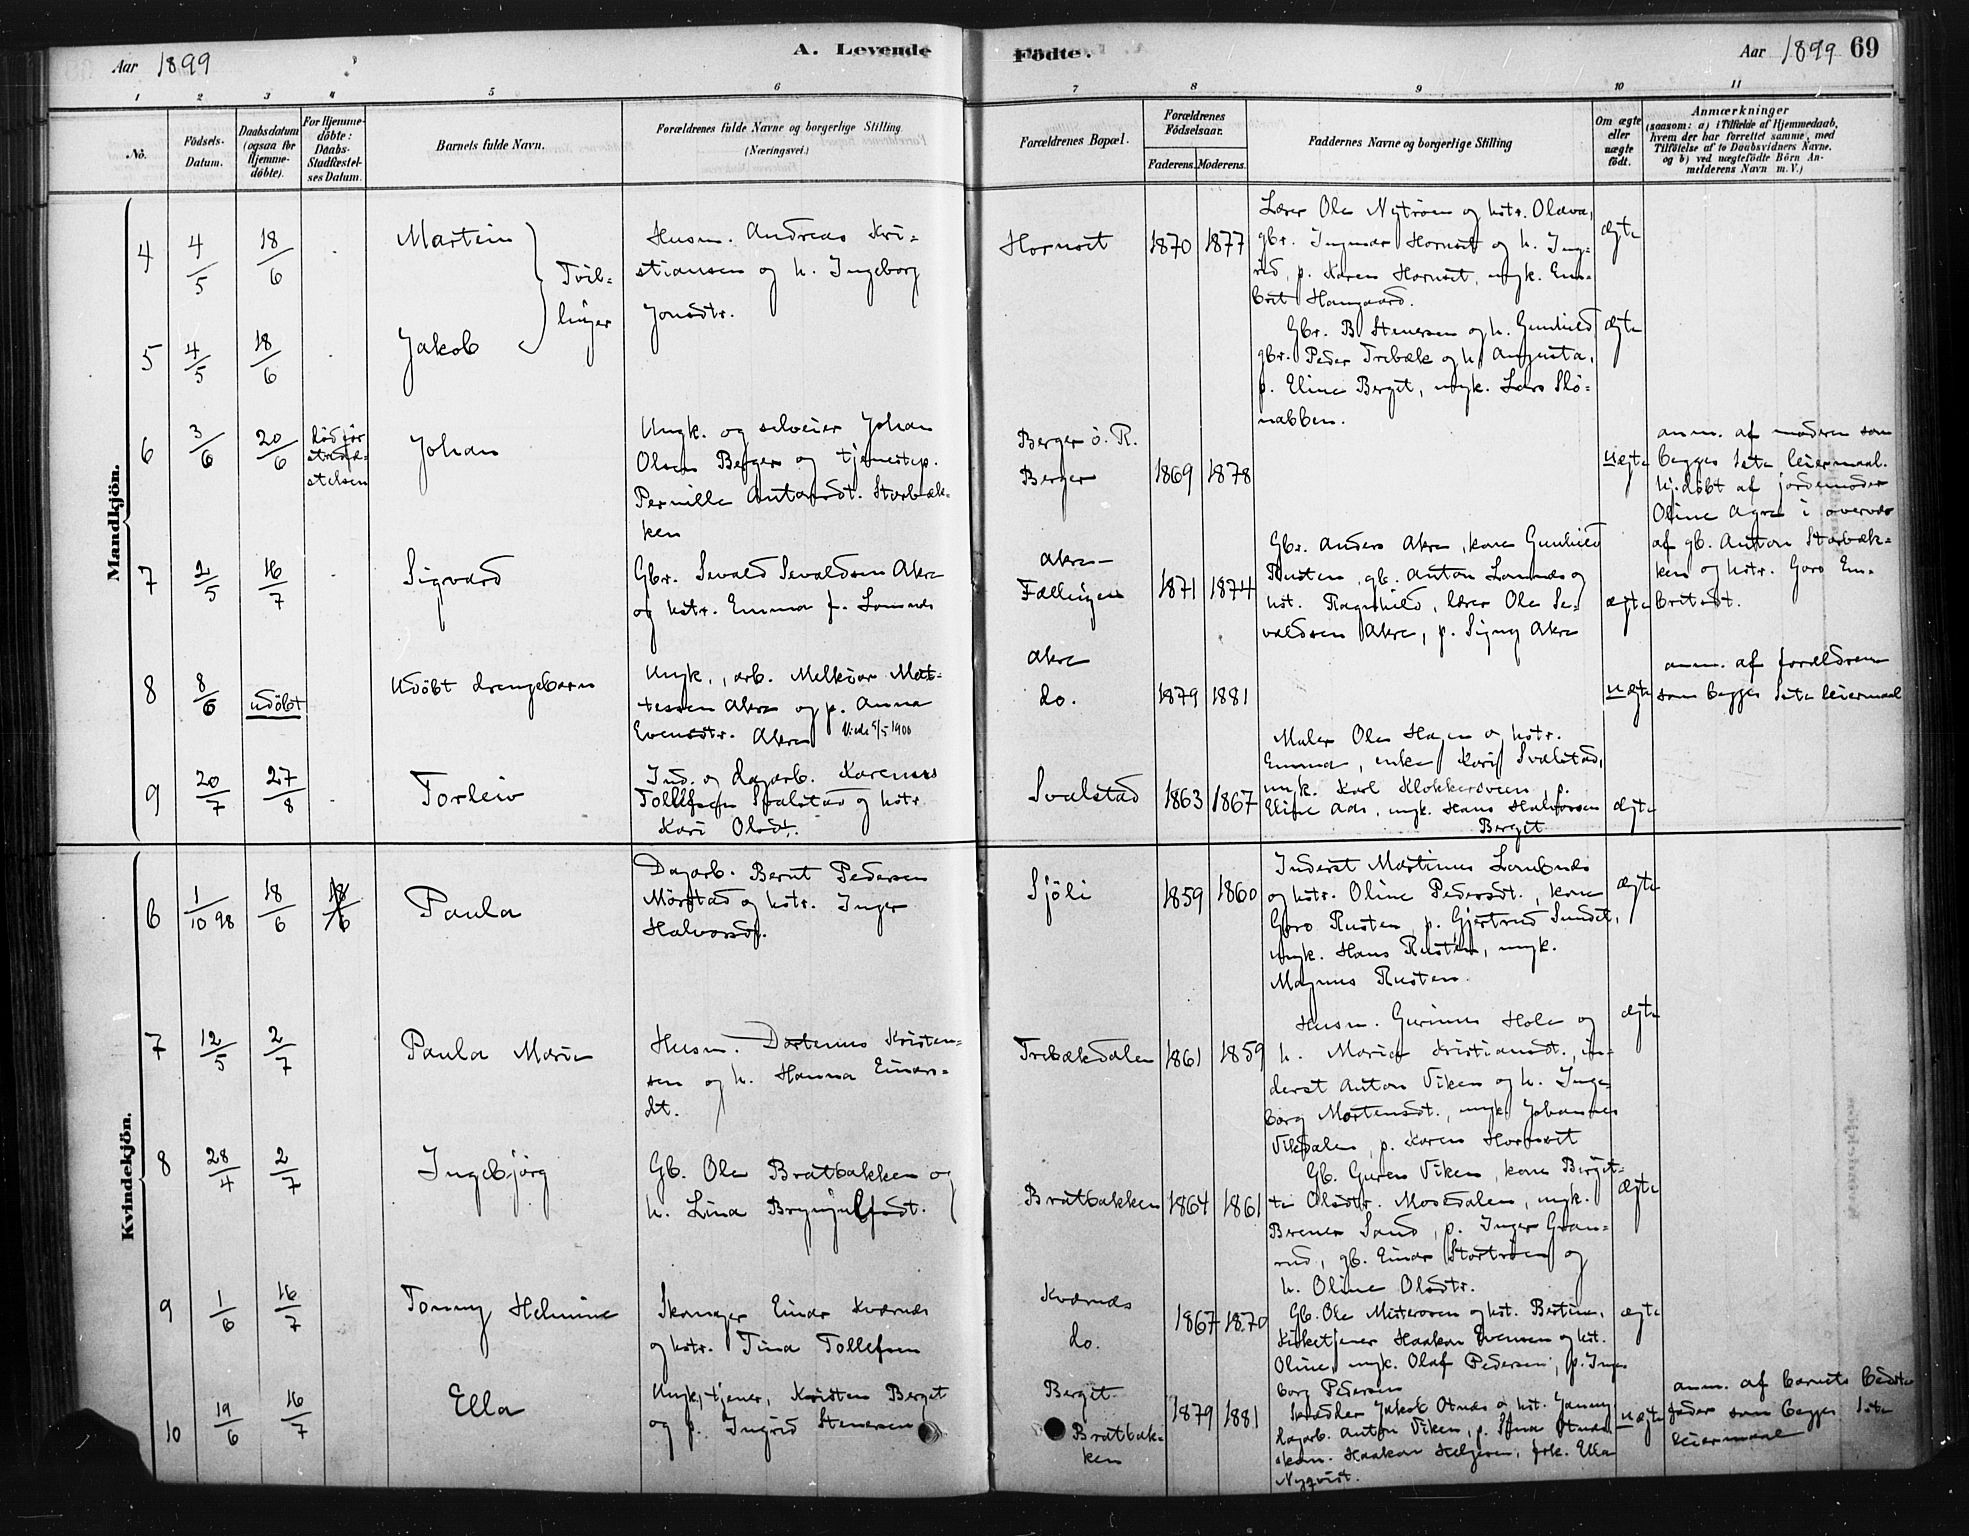 Aar 1899
A. Levende
Födte.
Aar 1899 69
1 2 3 4 5 6 7 8 9 10 11
No.
Födsels-
Datum.
Daabsdatum
(ogsaa for
Hjemme-
döbte).
For Hjemme-
döbte:
Daabs-
Stadfæstel-
ses Datum.
Barnets fulde Navn.
Forældrenes fulde Navne og borgerlige Stilling
(Næringsvei.)
Forældrenes Bopæl.
Forældrenes
Födselsaar.
Faderens. Moderens.
Faddernes Navne og borgerlige Stilling
Om ægte
eller
uægte
födt.
Anmærkninger
(saasom: a) i Tilfælde af Hjemmedaab,
hvem der har forrettet samme, med
Tilföielse af to Daabsvidners Navne,
og b) ved uægtefödte Börn An-
melderens Navn m. V.)
Mandkjön.
4
4/5
18/6
Martin
Tvil-
linger
Husm. Andreas Kri-
stiansen og h. Ingeborg
Jonsdtr.
Hornset
1870 1877
Lærer Ole Nytrøen og hstr. Olava,
gbr. Ingmar Hornset og h. Ing-
rid, p. Karen Hornset, ungk. Em-
bret Haugaard.
ægte
5
4/5
18/6
Jakob
Gbr. B Stenersen og h. Gunhild
gbr. Peder Trebæk og h. Augusta,
p. Eline Berget, ungk. Lars Slö-
nabben.
ægte
6
3/6
20/6
död för
stadfæ-
stelsen
Johan
Ungk. og selveier Johan
Olsen Berger og tjenestep.
Pernille Antonsdt. Storbæk-
ken
Berger ö. R.
Berger
1869 1878
uægte
anm. af moderen som
begges 1ste leiermaal.
hj.döbt af jordemoder
Oline Agre i overvær
af gb. Anton Storbæk-
ken og hstr. Goro Em-
bretsdt.
7
2/5
16/7
Sigvard
Gbr. Sevald Sevaldsen Akre
og hstr. Emma f. Lomnes
Akre-
Fællingen
1871 1874
Gbr. Anders Akre, kone Gunhild
Rusten, gb. Anton Lomnes og
hst. Ragnhild, lærer Ole Se-
valdsen Akre, p. Signy Akre
ægte
8
8/6
udöbt
Udöbt drengebarn
Ungk., arb. Melkior Mat-
tessen Akre og p. Anna
Evensdtr. Akre
Akre
do.
1879 1881
uægte
anm. af forældrene
som begges 1ste leiermaal
9
20/7
27/8
Torleiv
Ind. og dagarb. Karenus
Tollefsen Svalstad og hstr.
Kari Olsdt.
Svalstad
1863 1867
Maler Ole Hagen og hstr.
Emma, enke Kari Svalstad,
ungk. Karl Klokkersveen, p.
Eline Aas, ungk. Hans Halvorsen
Berget
ægte
Kvindekjön.
6
1/10 98
18/6
18/6
Paula
Dagarb. Bernt Pedersen
Mörstad og hstr. Inger
Halvorsdt.
Sjöli
1859 1860
Inderst Martinus Lombnes
og hstr. Oline Pedersdt., kone
Goro Rusten, p. Gjertrud Sundet,
ungk. Hans Rusten, ungk.
Magnus Rusten.
ægte
7
12/5
2/7
Paula Marie
Husm. Dortenus Kristen-
sen og h. Hanna Einars-
dt.
Trebækdalen
1861 1859
Husm. Gurinus Hole og
h. Marie Kristiansdt., in-
derst Anton Viken og h. Inge-
borg Mortensdt., ungk. Johannes
Vikdalen, p. Karen Hornset
ægte
8
28/4
2/7
Ingebjörg
Gb. Ole Bratbakken og
h. Lina Brynjulfsdt.
Bratbakken
1864 1861
Gb. Guren Viken, kone Berget-
te Olsdtr. Mosdalen, ungk.
Berener Sand, p. Inger Gran-
rud, gb. Einar Stortröen og
h. Oline Olsdtr.
ægte
9
1/6
16/7
Tonny Helmine
Skomager Einar Kværnes
og hstr. Tina Tollefsen
Kværnes
do.
1867 1870
Gb. Ole Misteroen og hst. Bertine,
Kirketjener Haakon Evensen og hst.
Oline, ungk. Olaf Pedersen, p. Inge-
borg Pedersen
ægte
10
19/6
16/7
Ella
Ungk, tjener, Kristen Berget
og p. Ingrid Stenersen
Berget
Bratbak-
ken
1879 1881
Jakob Otnes og hst. Jenny
dagarb. Anton Viken, p.
Haakon Helgesen, frk. Ella
Nyqvist.
uægte
anm. af barnets bedste-
fader som begges 1ste
leiermaal